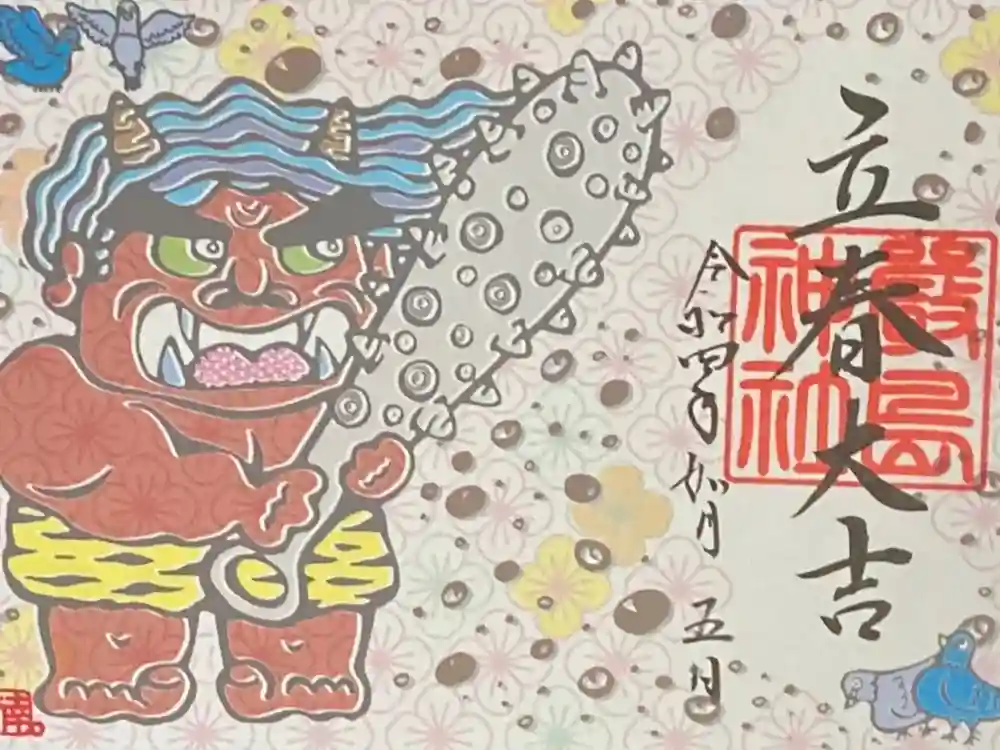 立春大吉
嚴島
神社
令和四年如月五日